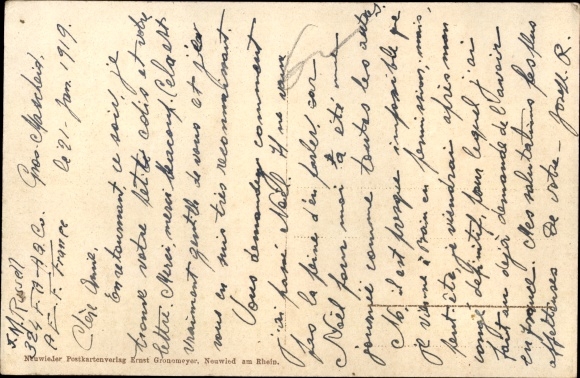 J. M. Russell
324 F. O. H. Q. Co.
A. E. F. France
le 21 - Jan. 1919.
Chère Amie,
En retournant ce soir, je
trouve votre petite colis et votre
lettre. Merci, merci beaucoup. Cela est
vraiment gentille de vous et je
vous en suis très reconnaissant.
Vous demandez comment
j'ai passé Noël. Il ne vaut
pas la peine d'en parler, car
Noël pour moi a été une
journée comme toutes les autres.
No, il est presque impossible que
je vienne à en permission, mais,
peut-être, je viendrai après mon
congé définitif, pour lequel j'ai
fait un déjà demande de l'avoir
en Mes salutations les plus
affectueuses. De votre - Joseph. R.
Neuwieder Postkartenverlag Ernst Gronemeyer, Neuwied am Rhein.